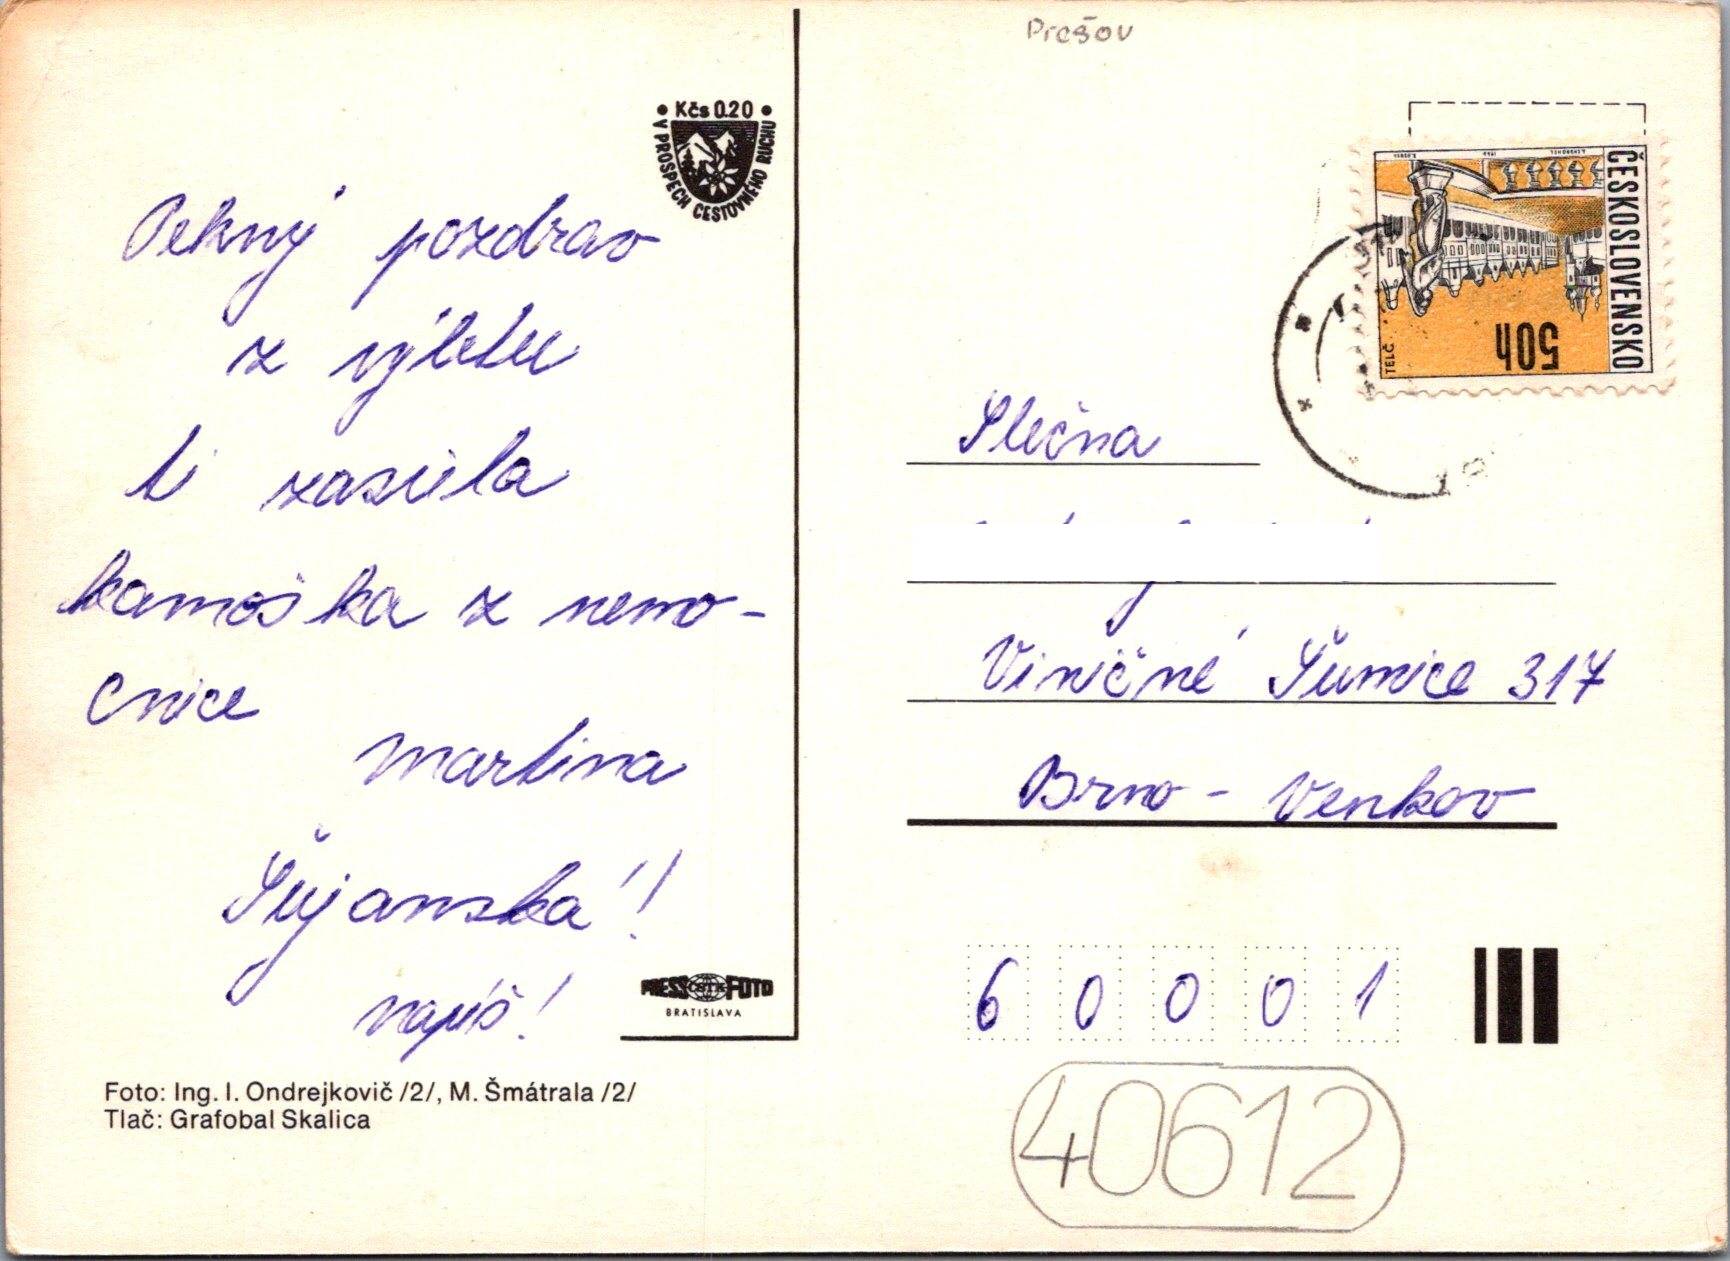 Prešov
• Kčs 0.20 •
V PROSPECH CESTOVNÉHO RUCHU
Pekný pozdrav
z výletu
ti zasiela
kamoška z nemo-
cnice
Martina
Šujanská!
napíš!
PRESS ČSTK FOTO
BRATISLAVA
Foto: Ing. I. Ondrejkovič /2/, M. Šmátrala /2/
Tlač: Grafobal Skalica
ČESKOSLOVENSKO
50h
TELČ
Slečna
Viničné Šumice 317
Brno - Venkov
6 0 0 0 1
40612